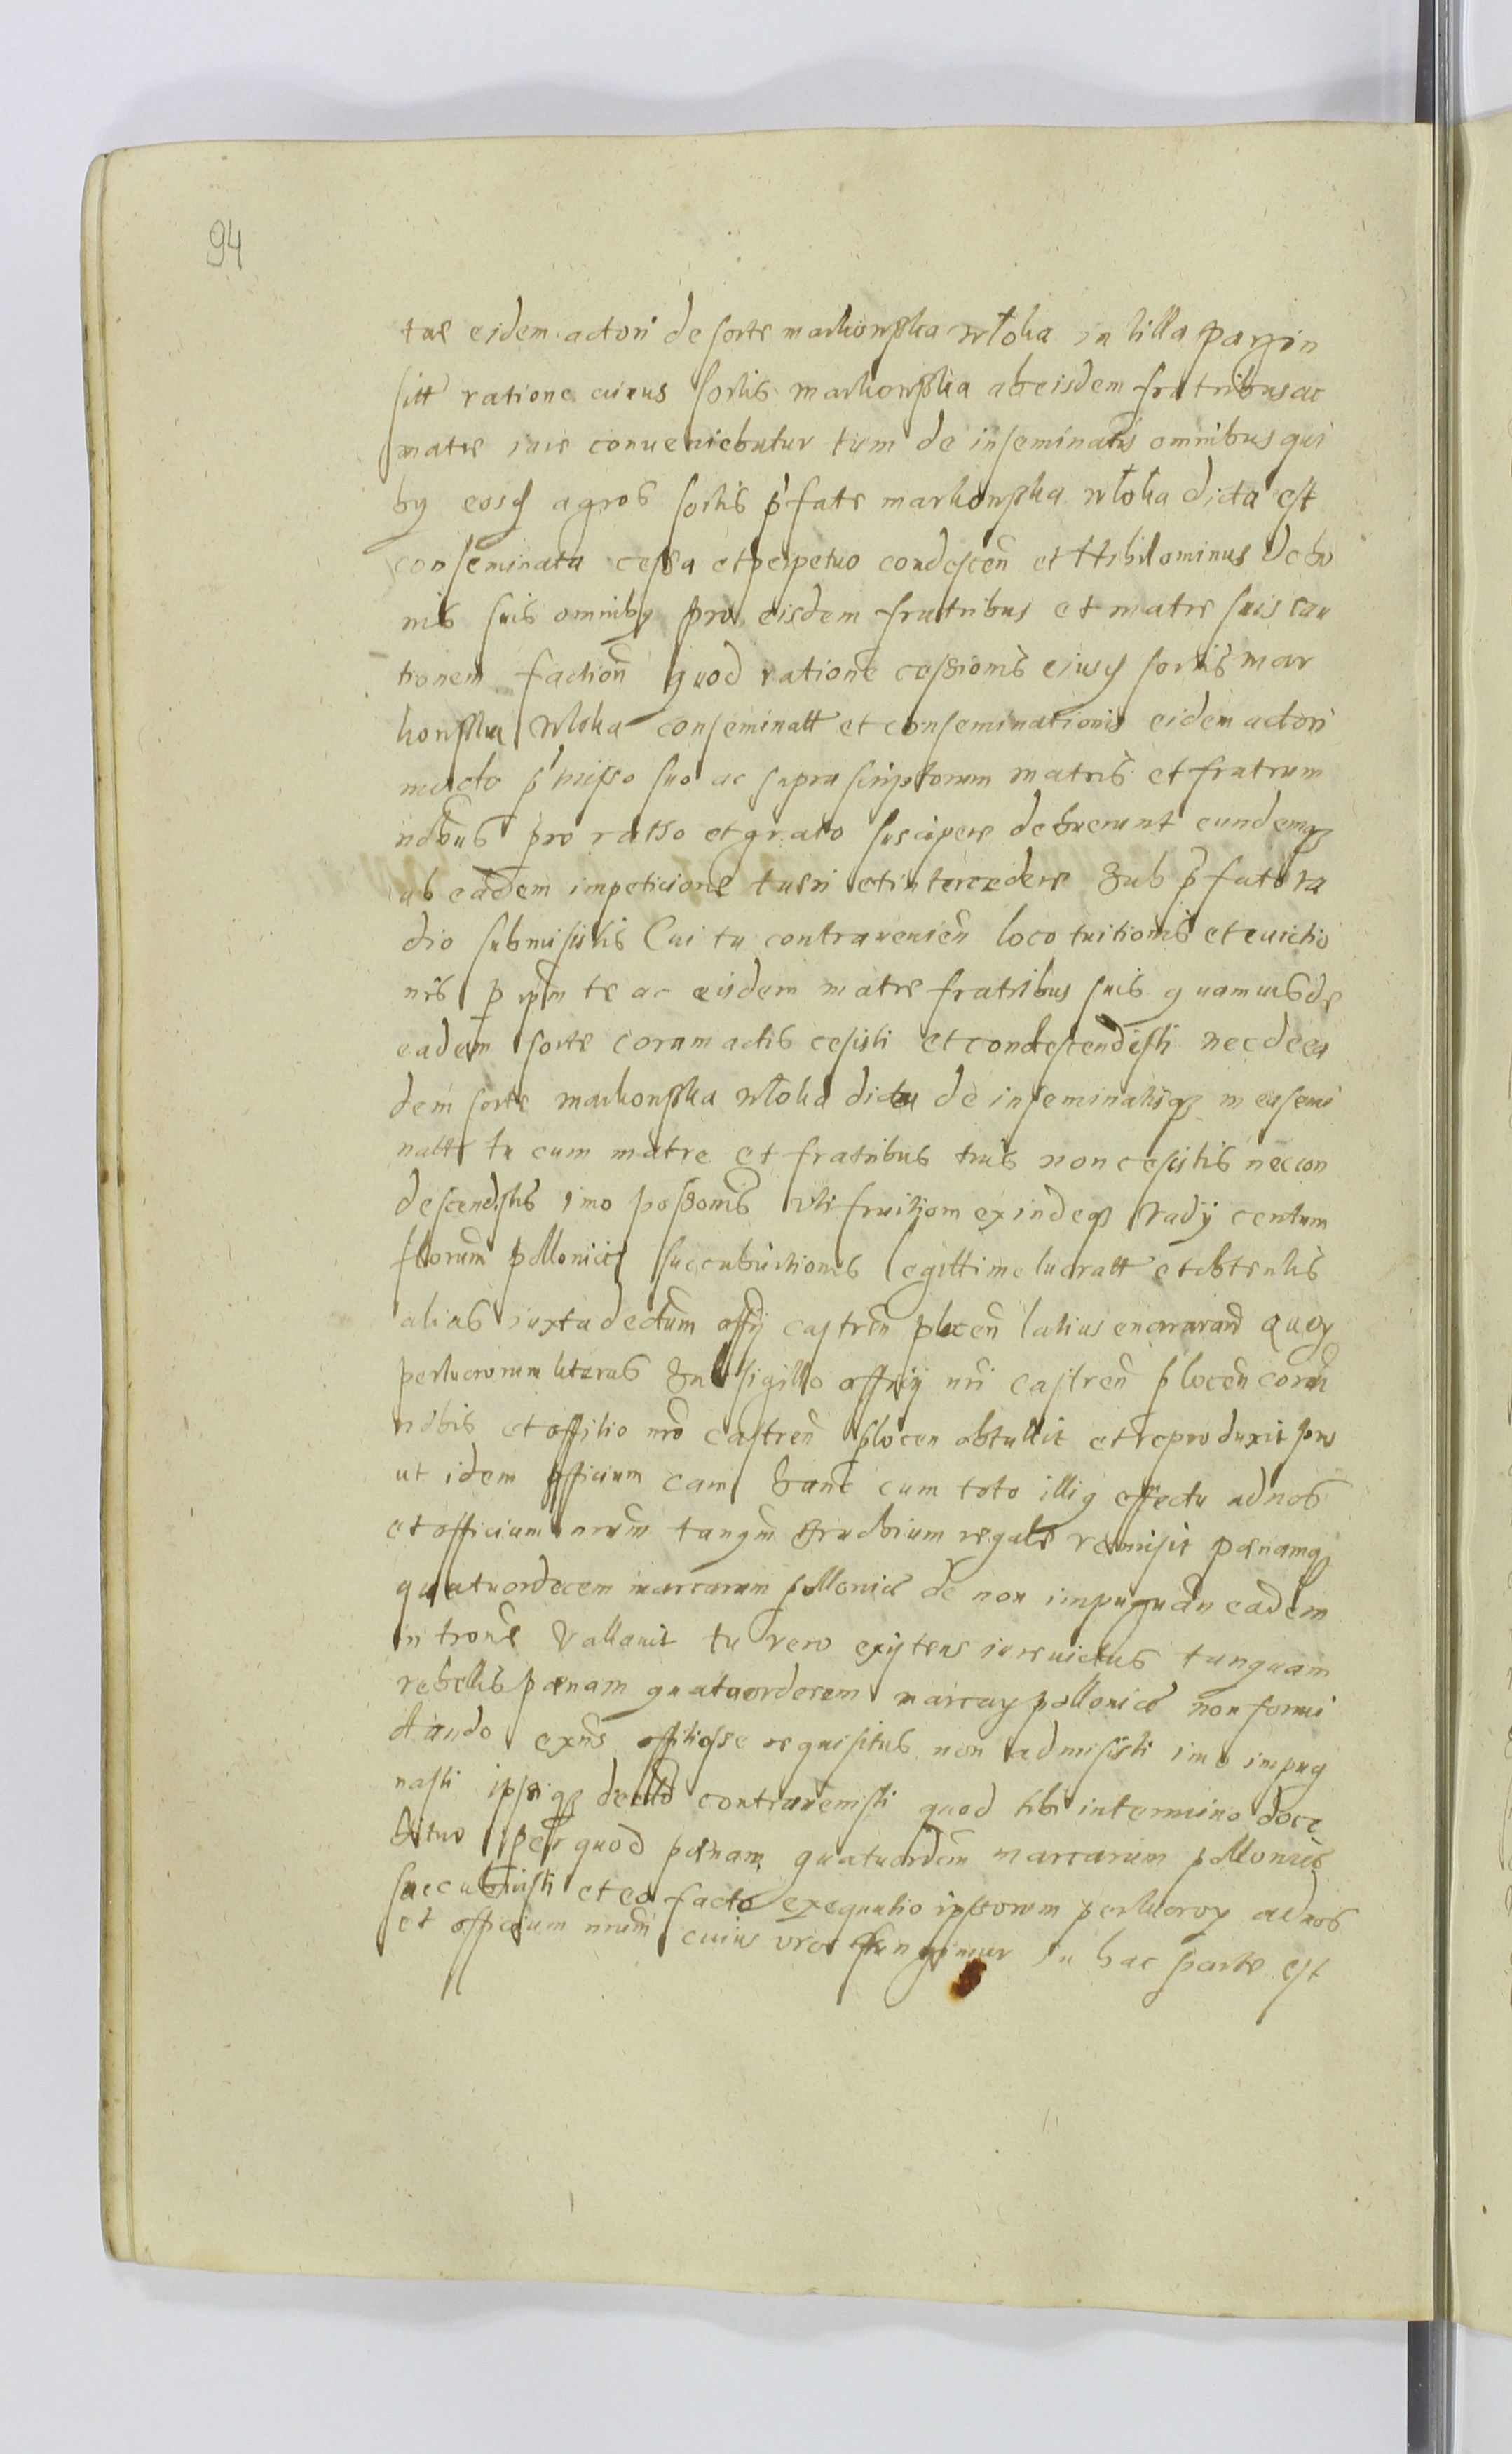 94
tue eidem actori de sorte markowska wloka in villa parzin
sitt ratione cuius sortis markowska ab eisdem fratribus ac
matre iure conueniebatur tum de inseminatis omnibus qui
by eosq agros sortis p̃fate markowska wloka dicta est
conseminata cessa et perpetuo condescen̄ et Nihilominus de bo
nis suis omnibq pro eisdem fratribus et matre suis cau
tionem faction̄ quod ratione cessionis eiusq sortis mar
kowska wloka conseminatt et conseminationis eidem actori
modo p̃misso suo ac suprascriptorum matris et fratrum
no̅ibus pro ratto et grato suscipere debuerunt eundemq
ab eadem impeticione tueri et intercedere Sub p̃fato va
dio submisistis Cui tu contravenien̄ loco tuitionis et euictio
nis p ip̄m te ac eisdem matre fratribus suis quamuis de
eadem sorte coram actis cesisti et condescendisti nec de ea
dem sorte markowska wloka dicta de inseminatisq in ea semi
natt tu cum matre et fratribus tuis non cesistis nec con
descendistis imo possionis uti fruitiom exindeq vadij centum
florum pollonic succubuitionis legittime lucratt et obtentis
alias iuxta dectum offij castren̄ plocen̄ latius enarrand quoy
perlucrorum literas Sub sigillo officij nr̄i castren̄ plocen̄ coram
nobis et offitio nr̄o castren̄ plocen obtullit et reproduxit prou
ut idem officium eam hanc cum toto illiq effectu ad nos
et officium nrum̄ tanqm̄ brachium regale remisit pœnamq
quatuordecem marcarum pollonic de non impugnan̄ eadem
introm̄e vallauit tu vero existens iure uictus tanquam
rebellis pœnam quatuordecem marcay pollonic non formi
dando exn̄s offitiose requisitus non admisisti imo impug
nasti ipsiq decto contrauenisti quod tibi in termino doce
bitur per quod pœnam quatuordem marcarum pollonic
succubuisti et eo facto exequutio ipsorum perlucroy ad nos
et officium nrum̄ cuius vice fungimur in hac parte est